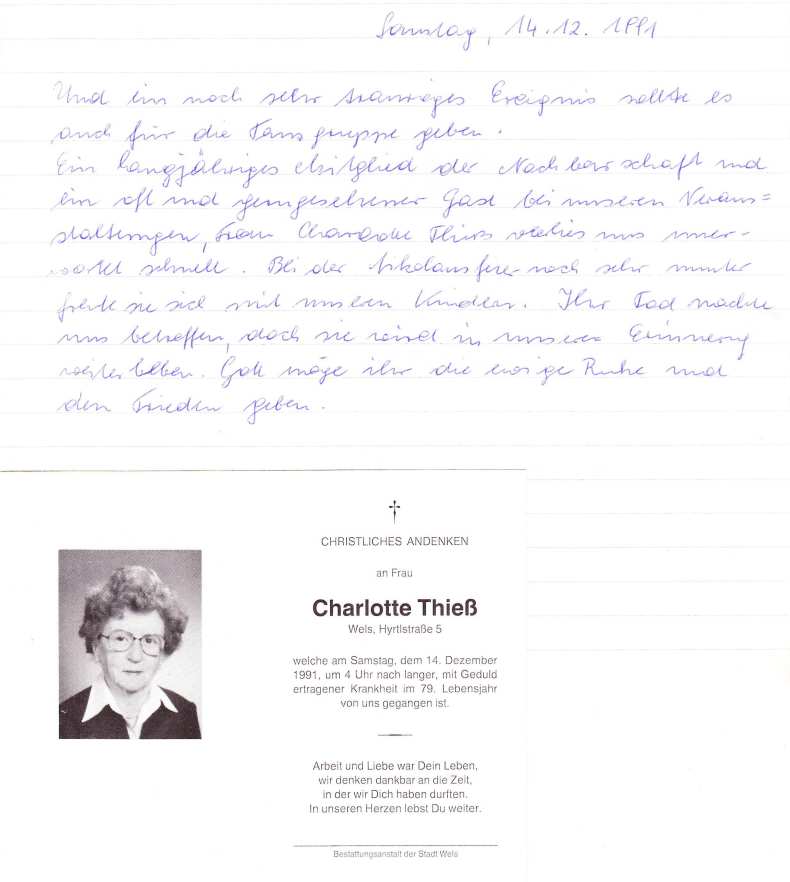 Samstag, 14.12.1991
Und ein noch sehr trauriges Ereignis sollte es
auch für die Tanzgruppe geben.
Ein langjähriges Mitglied der Nachbarschaft und
ein oft und gerngesehener Gast bei unseren Verans=
staltungen, Frau Charlotte Thiess verlies uns uner-
wartet schnell. Bei der Nikolausfeier noch sehr munter
freute sie sich mit unseren Kindern. Ihr Tod machte
uns betroffen, doch sie wird in unserer Erinnerung
weiterleben. Gott möge ihr die ewige Ruhe und
den Frieden geben.
CHRISTLICHES ANDENKEN
an Frau
Charlotte Thieß
Wels, Hyrtlstraße 5
welche am Samstag, dem 14. Dezember
1991, um 4 Uhr nach langer, mit Geduld
ertragener Krankheit im 79. Lebensjahr
von uns gegangen ist.
Arbeit und Liebe war Dein Leben,
wir denken dankbar an die Zeit,
in der wir Dich haben durften.
In unseren Herzen lebst Du weiter.
Bestattungsanstalt der Stadt Wels